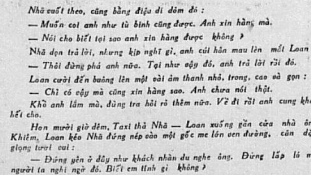 Nhã suốt theo, cũng bằng điệu dí dỏm đó :
— Muốn coi anh như tù binh cũng được. Anh xin hàng mà.
— Nói cho biết tại sao anh xin hàng được không ?
Nhã dọn trả lời, nhưng kịp nghĩ gì, anh cúi hôn mau lên môi Loan
— Thôi đừng phá anh nữa. Tại như vậy đó, anh trả lời rồi đó.
Loan cười đến buông lên một vài âm thanh nhỏ, trong, cao và gọn :
— Chỉ có vậy mà cũng xin hàng sao. Anh chưa nói thật.
Khổ anh lắm mà, đừng tra hỏi rõ thêm nữa. Về đi rồi anh cung kh
hết cho.
Hơn mười giờ đêm, Taxi thả Nhã — Loan xuống gần cửa nhà ôn
Khiêm, Loan kéo Nhã đứng nép vào một gốc me lớn ven đường, căn dặ
giọng tươi vui :
— Đứng yên ở đây như khách nhàn du nghe ông. Đừng lấp ló m
người ta nghi ngờ đó. Biết em tính gì không ?